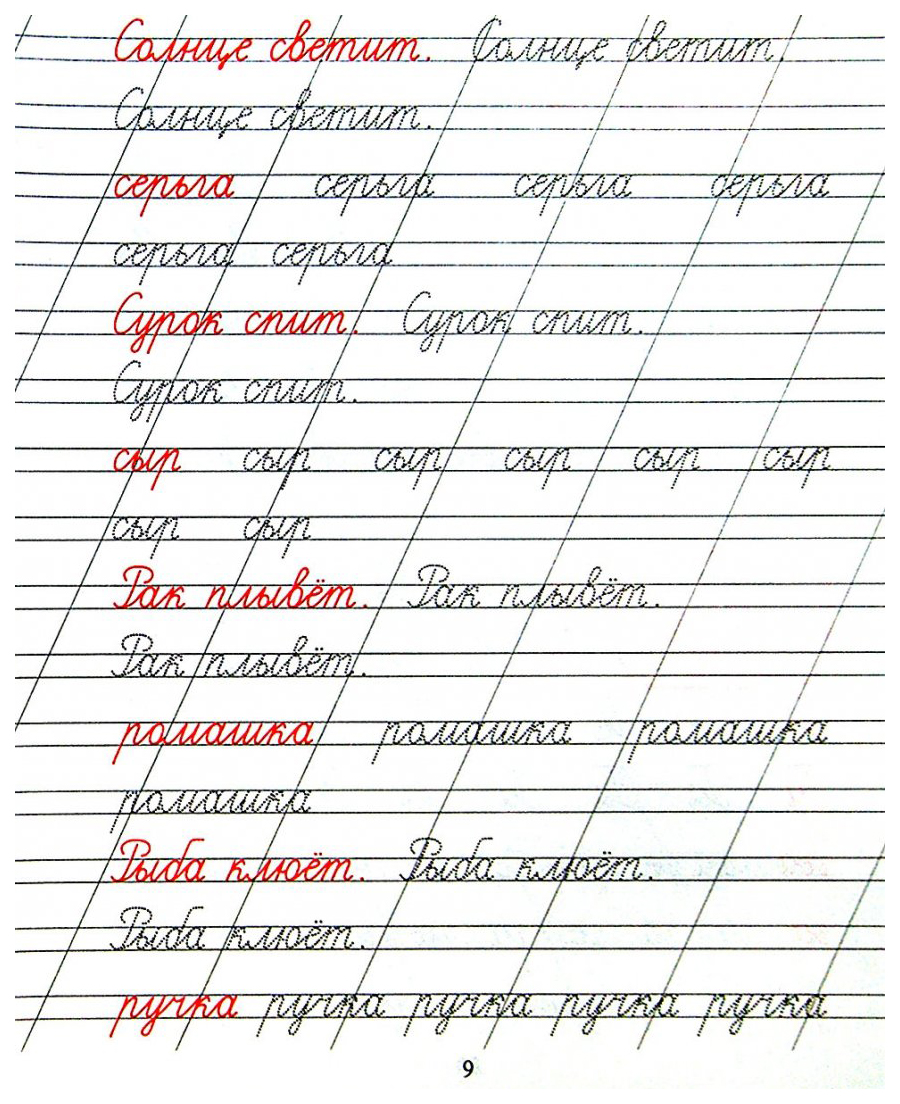 Солнце светит. Солнце светит.
Солнце светит.
серьга серьга серьга серьга
серьга серьга
Сурок спит. Сурок спит.
Сурок спит.
сыр сыр сыр сыр сыр сыр
сыр сыр
Рак плывёт. Рак плывёт.
Рак плывёт.
ромашка ромашка ромашка
ромашка
Рыба клюёт. Рыба клюёт.
Рыба клюёт.
ручка ручка ручка ручка ручка
9